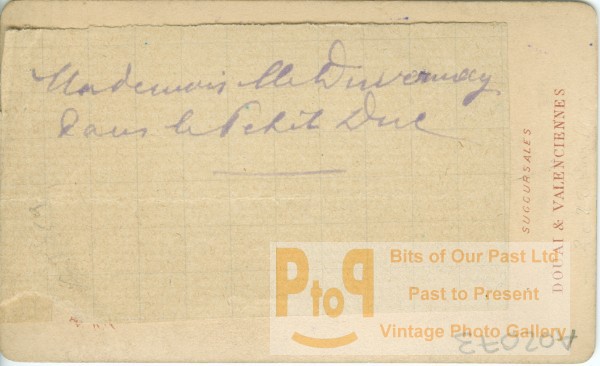 Mademoiselle Duvernay
dans le Petit Duc
SUCCURSALES
DOUAI & VALENCIENNES
PtoP
Bits of Our Past Ltd
Past to Present
Vintage Photo Gallery
A02073